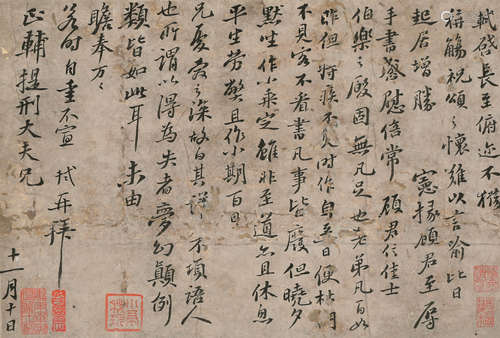 軾啓長至俯迩不獲
稱觴祝頌之懷難以言諭比日
起居增勝 憲掾顧君至辱
手書感慰倍常 顧君信佳士
伯樂之廐固無凡足也老弟凡百如
昨但痔疾不免時作自至日便杜門
不見客不看書凡事皆廢但曉夕
默坐作小乘定雖非至道亦且休息
平生勞弊且作少期百日
兄憂愛之深故白其詳不須語人
也所謂以得為失者夢幻顛倒
類皆如此耳 未由
瞻奉萬萬
若時自重不宣 軾再拜
正輔提刑大夫兄
十一月十日